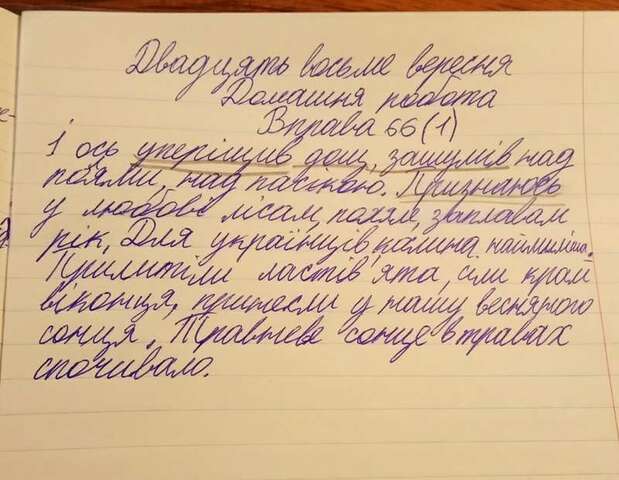 Двадцять восьме вересня
Домашня робота
Вправа 66(1)
І ось уперіщив дощ, зашумів над
полями, над пасікою. Признаюсь
у любові лісам, полям, заплавам
рік. Для українців калина наймиліша.
Прилитіли ластів'ята, сіли край
віконця, принесли у нашу весняного
сонця. Травневе сонце в травах
спочивало.